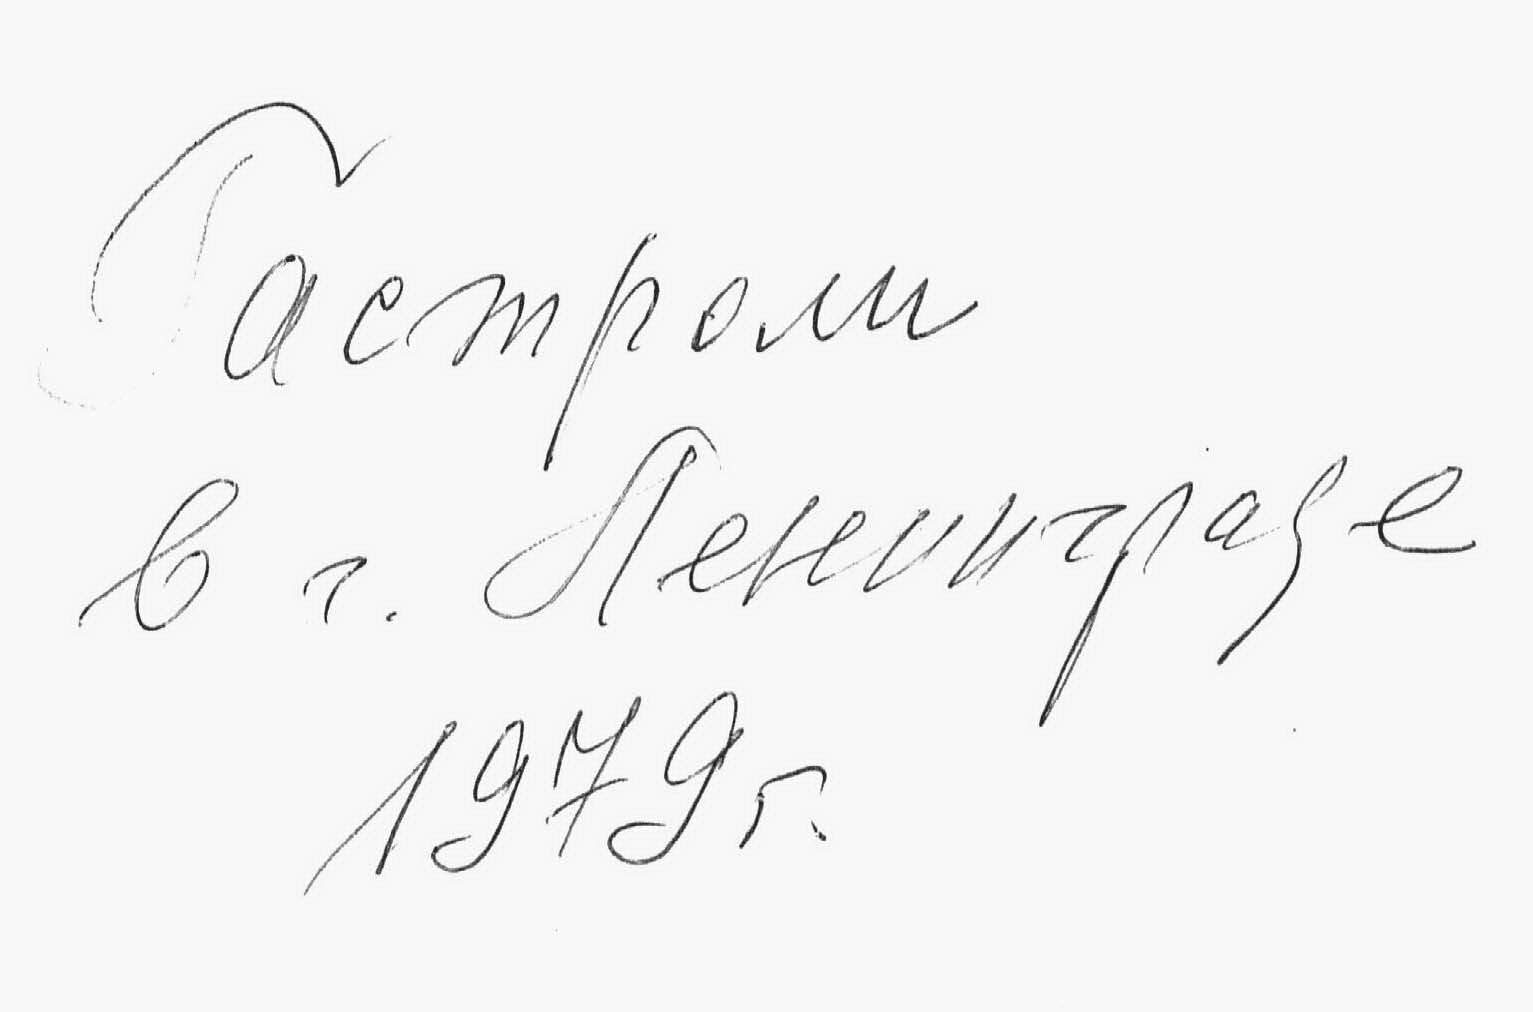 Гастроли
в г. Ленинграде
1979 г.